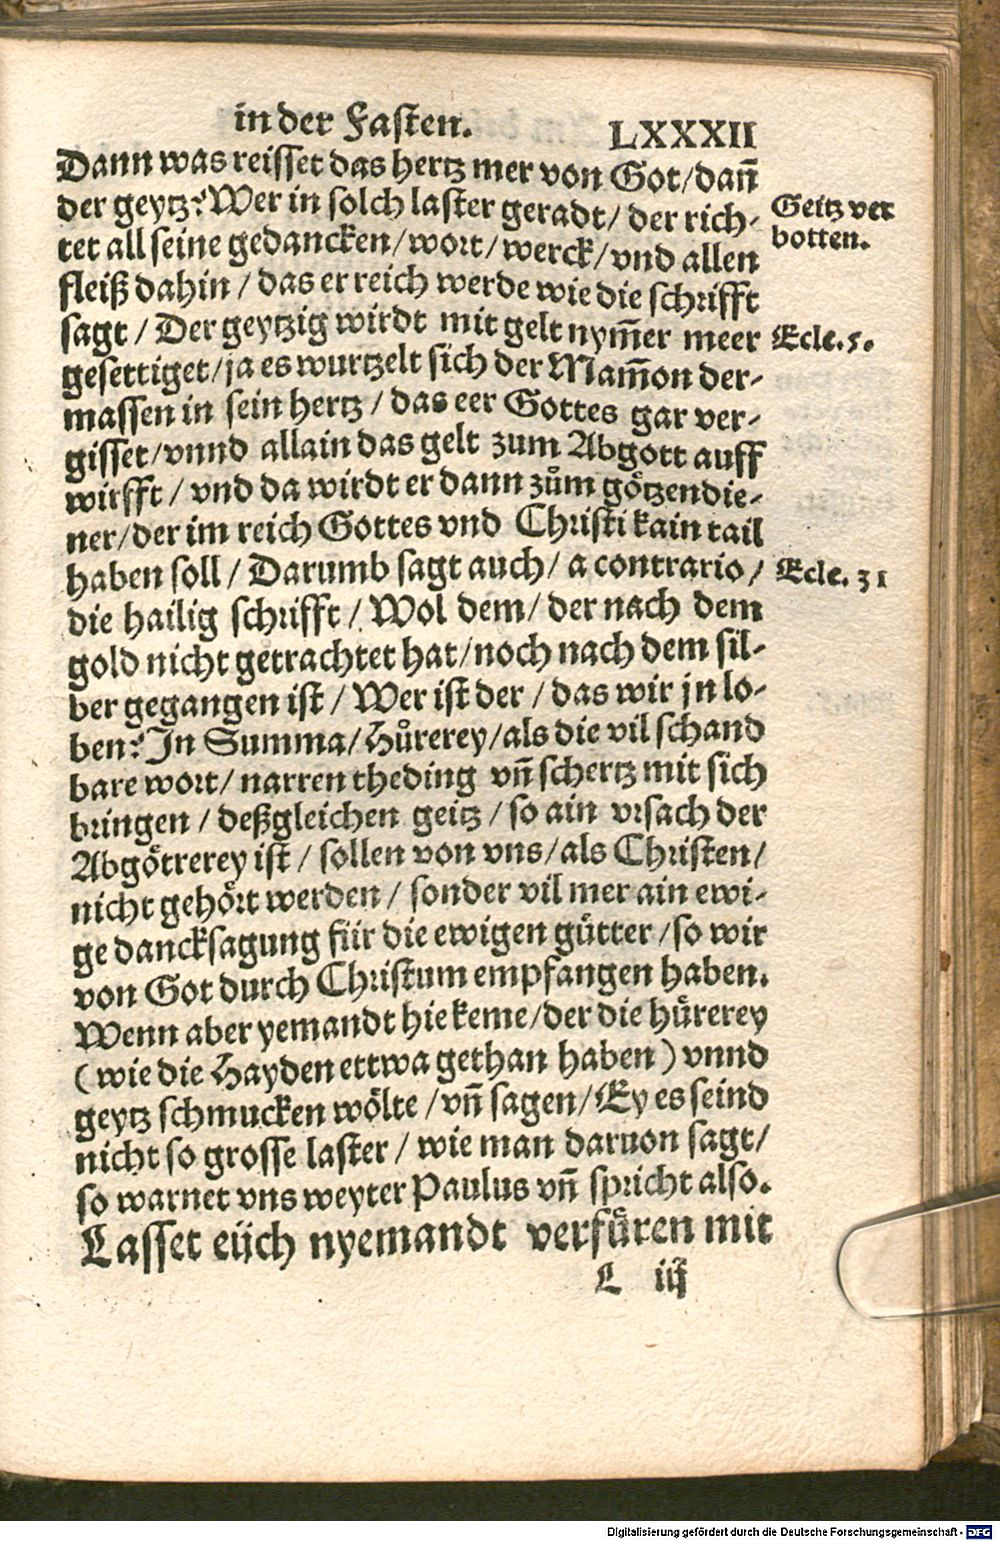 in der Fasten. LXXXII
Dann was reisset das hertz mer von Got/dañ
der geytz? Wer in solch laster geradt/ der rich-
tet all seine gedancken/wort/werck/vnd allen
fleiß dahin / das er reich werde wie die schrifft
sagt / Der geytzig wirdt mit gelt nym̃er meer
gesettiget/ja es wurtzelt sich der Mam̃on der-
massen in sein hertz / das eer Gottes gar ver-
gisset/vnnd allain das gelt zum Abgott auff
wirfft / vnd da wirdt er dann zům götzendie-
ner/der im reich Gottes vnd Christi kain tail
haben soll / Darumb sagt auch/ a contrario/
die hailig schrifft / Wol dem/ der nach dem
gold nicht getrachtet hat/noch nach dem sil-
ber gegangen ist / Wer ist der / das wir jn lo-
ben? In Summa/Hůrerey/als die vil schand
bare wort/ narren theding vñ schertz mit sich
bringen / deßgleichen geitz / so ain vrsach der
Abgötrerey ist / sollen von vns/als Christen/
nicht gehört werden / sonder vil mer ain ewi-
ge dancksagung für die ewigen gütter /so wir
von Got durch Christum empfangen haben.
Wenn aber yemandt hie keme/der die hürerey
(wie die Hayden ettwa gethan haben) vnnd
geytz schmucken wölte /vñ sagen/Ey es seind
nicht so grosse laster / wie man daruon sagt/
so warnet vns weyter Paulus vñ spricht also.
Lasset eüch nyemandt verfüren mit
L iij
Geitz ver
botten.
Ecle. 5.
Ecle. 31
Digitalisierung gefördert durch die Deutsche Forschungsgemeinschaft - DFG